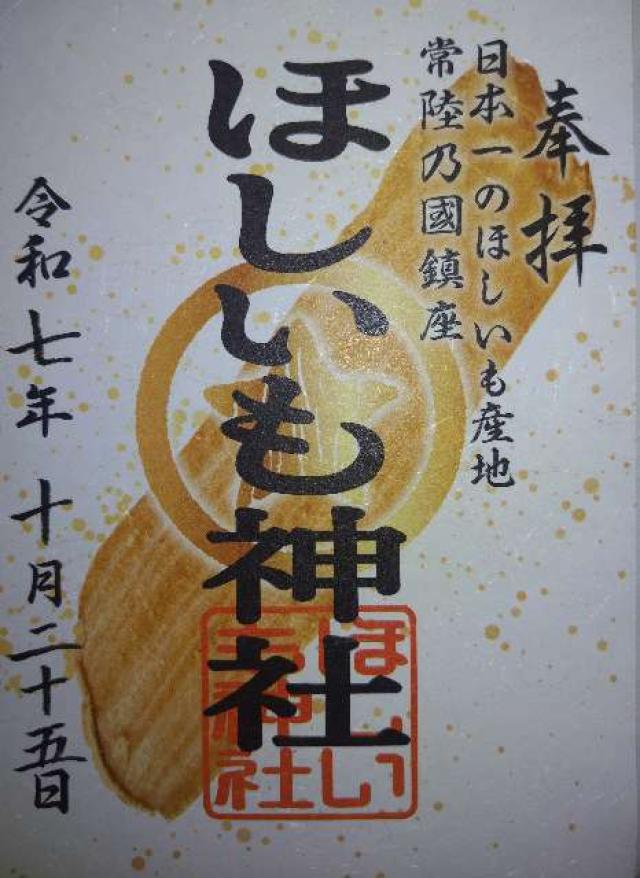 奉拝
日本一のほしいも産地
常陸乃國鎮座
ほしいも神社
ほしい
も神社
令和七年 十月二十五日